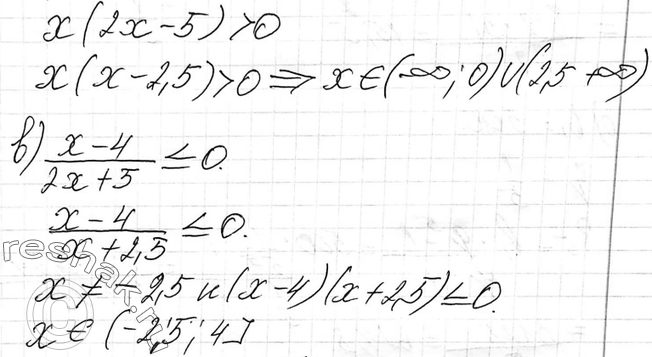 x(2x-5)>0
x(x-2,5)>0 ⇒ x∈(-∞; 0)∪(2,5 +∞)
в) (x-4)/(2x+5) ≤ 0.
(x-4)/(x+2,5) ≤ 0.
x ≠ -2,5 и (x-4)(x+2,5) ≤ 0.
x ∈ (-2,5; 4]
reshak.ru